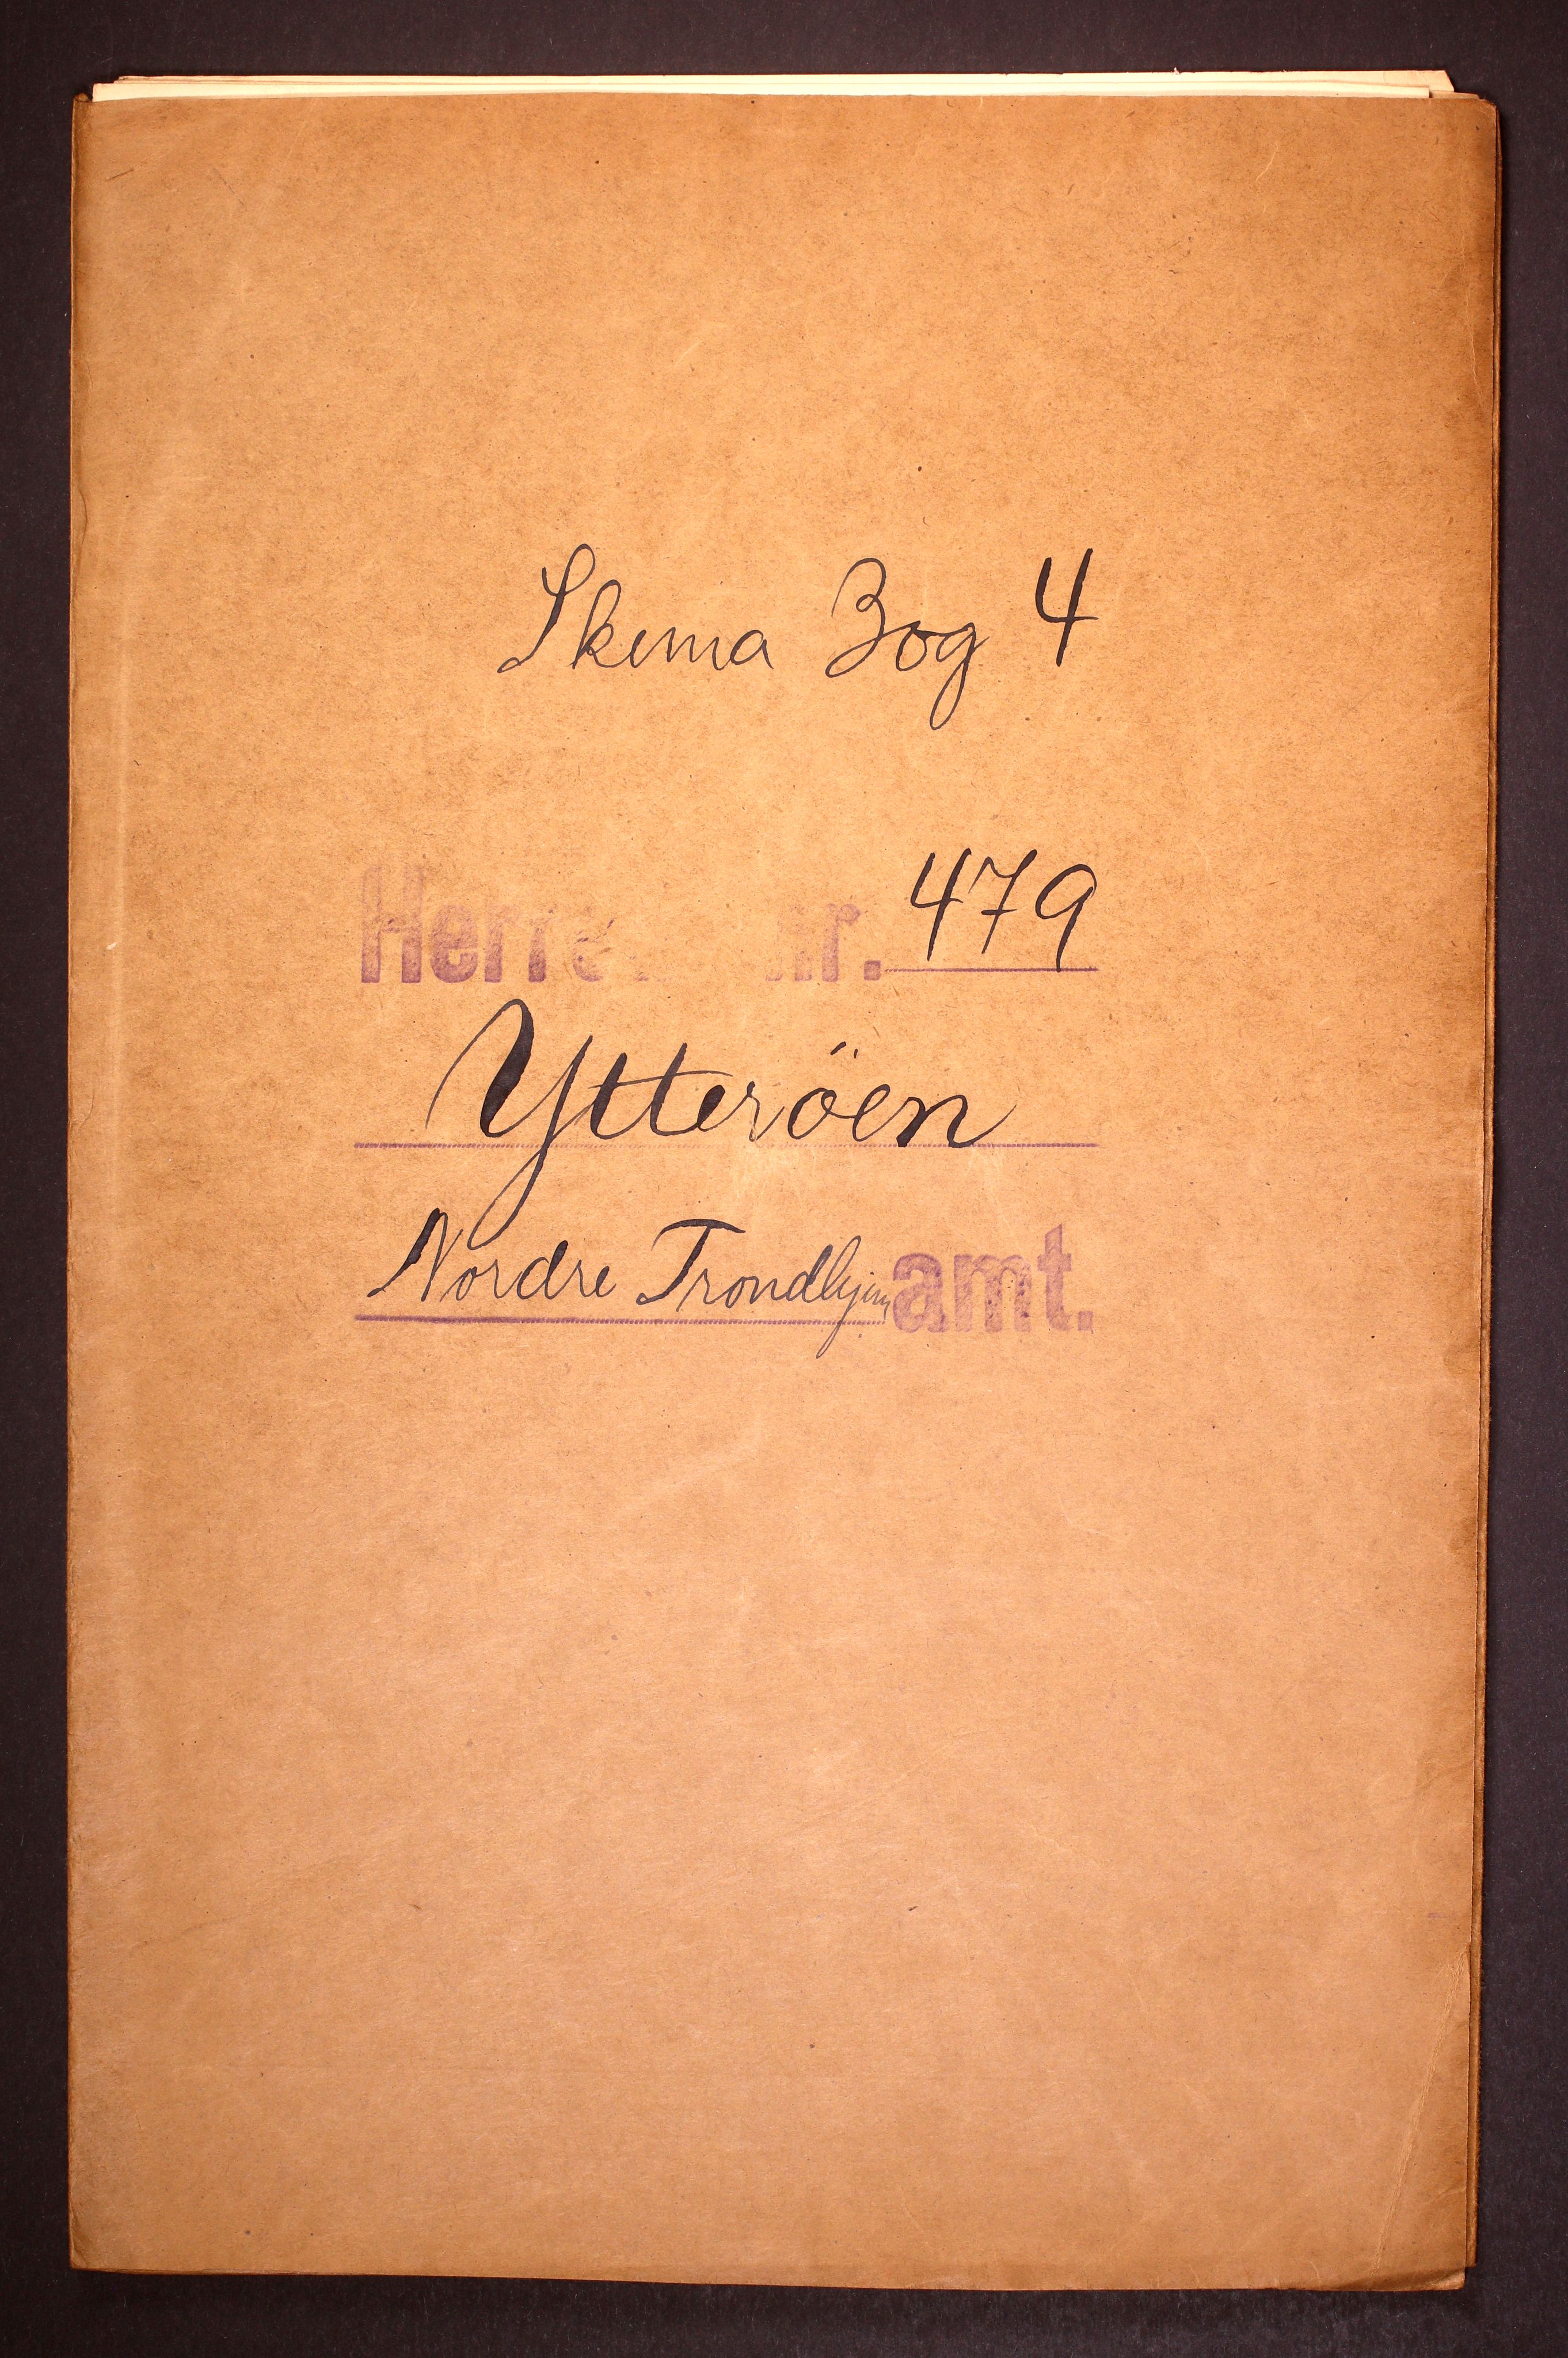 Skema Bog 4
Herred nr. 479
Ytteröen
Nordre Trondhjems amt.